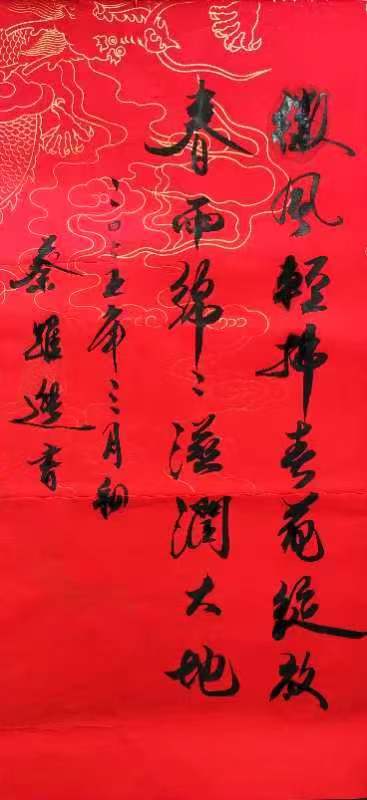 微风輕拂春花綻放
春雨綿々滋潤大地
二〇二五年三月初
蔡 書